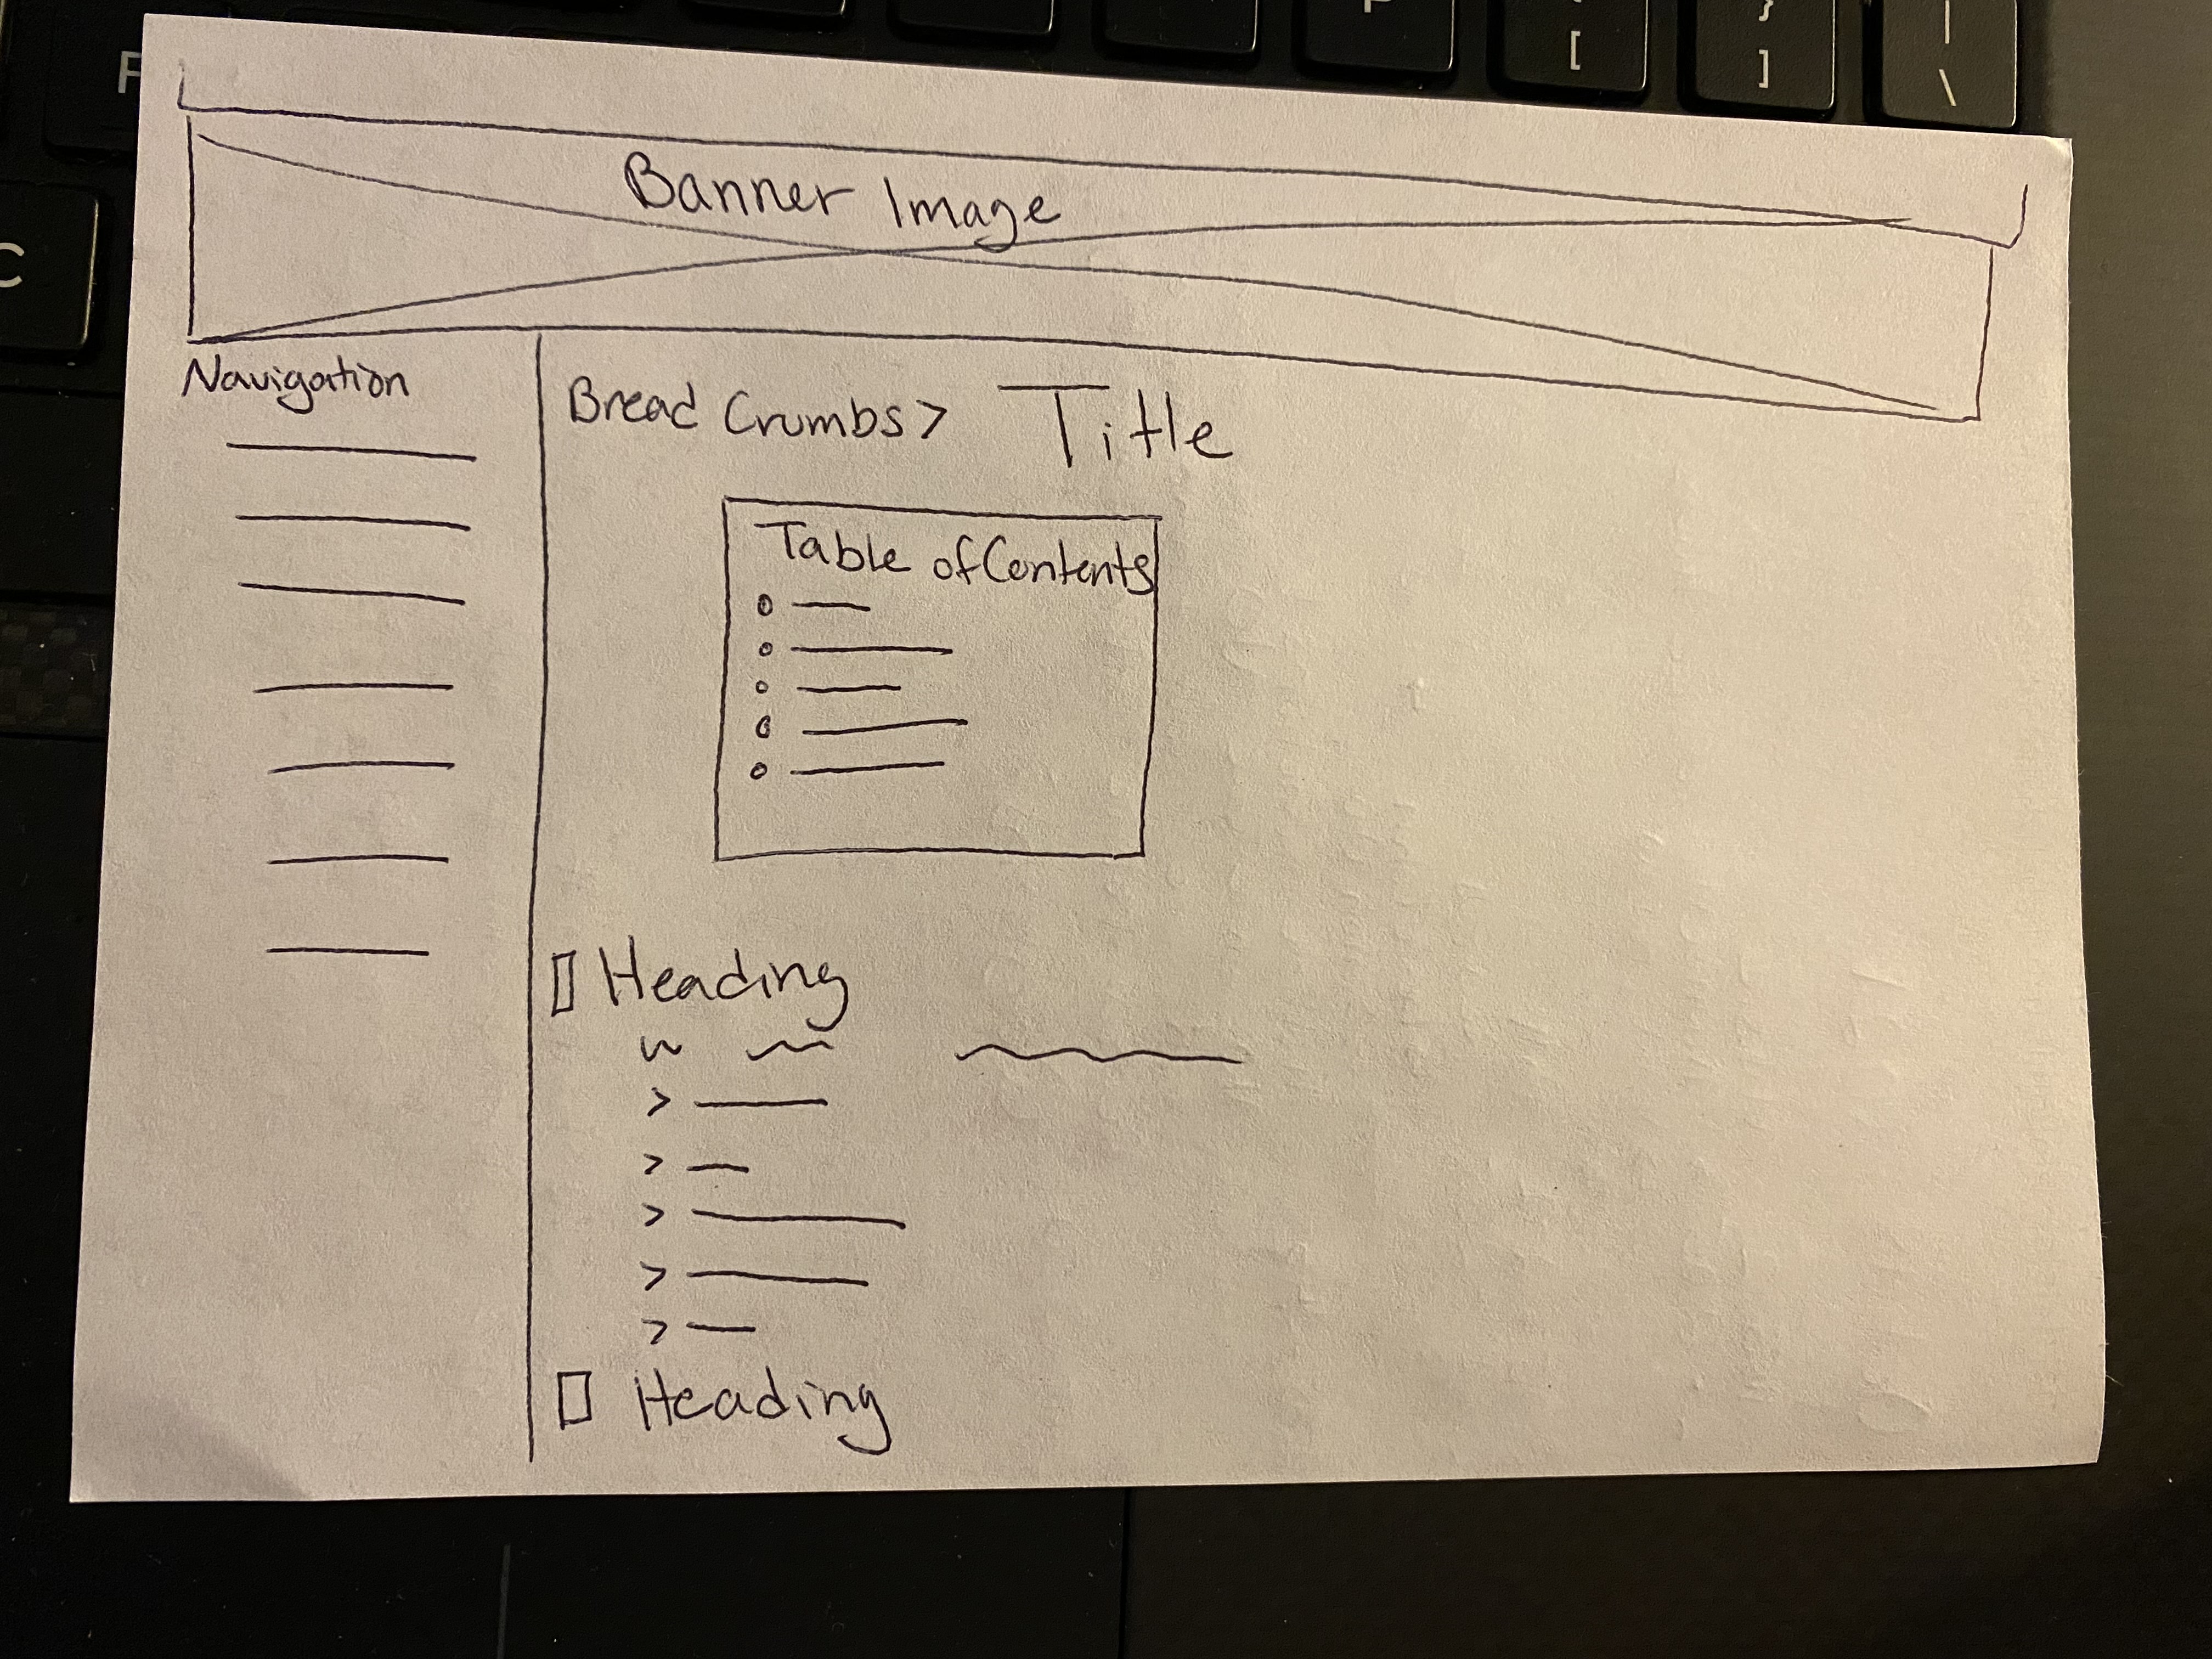 Banner Image
Navigation
Bread Crumbs > Title
Table of Contents
Heading
Heading
C
F
P
[
]
}
\
|